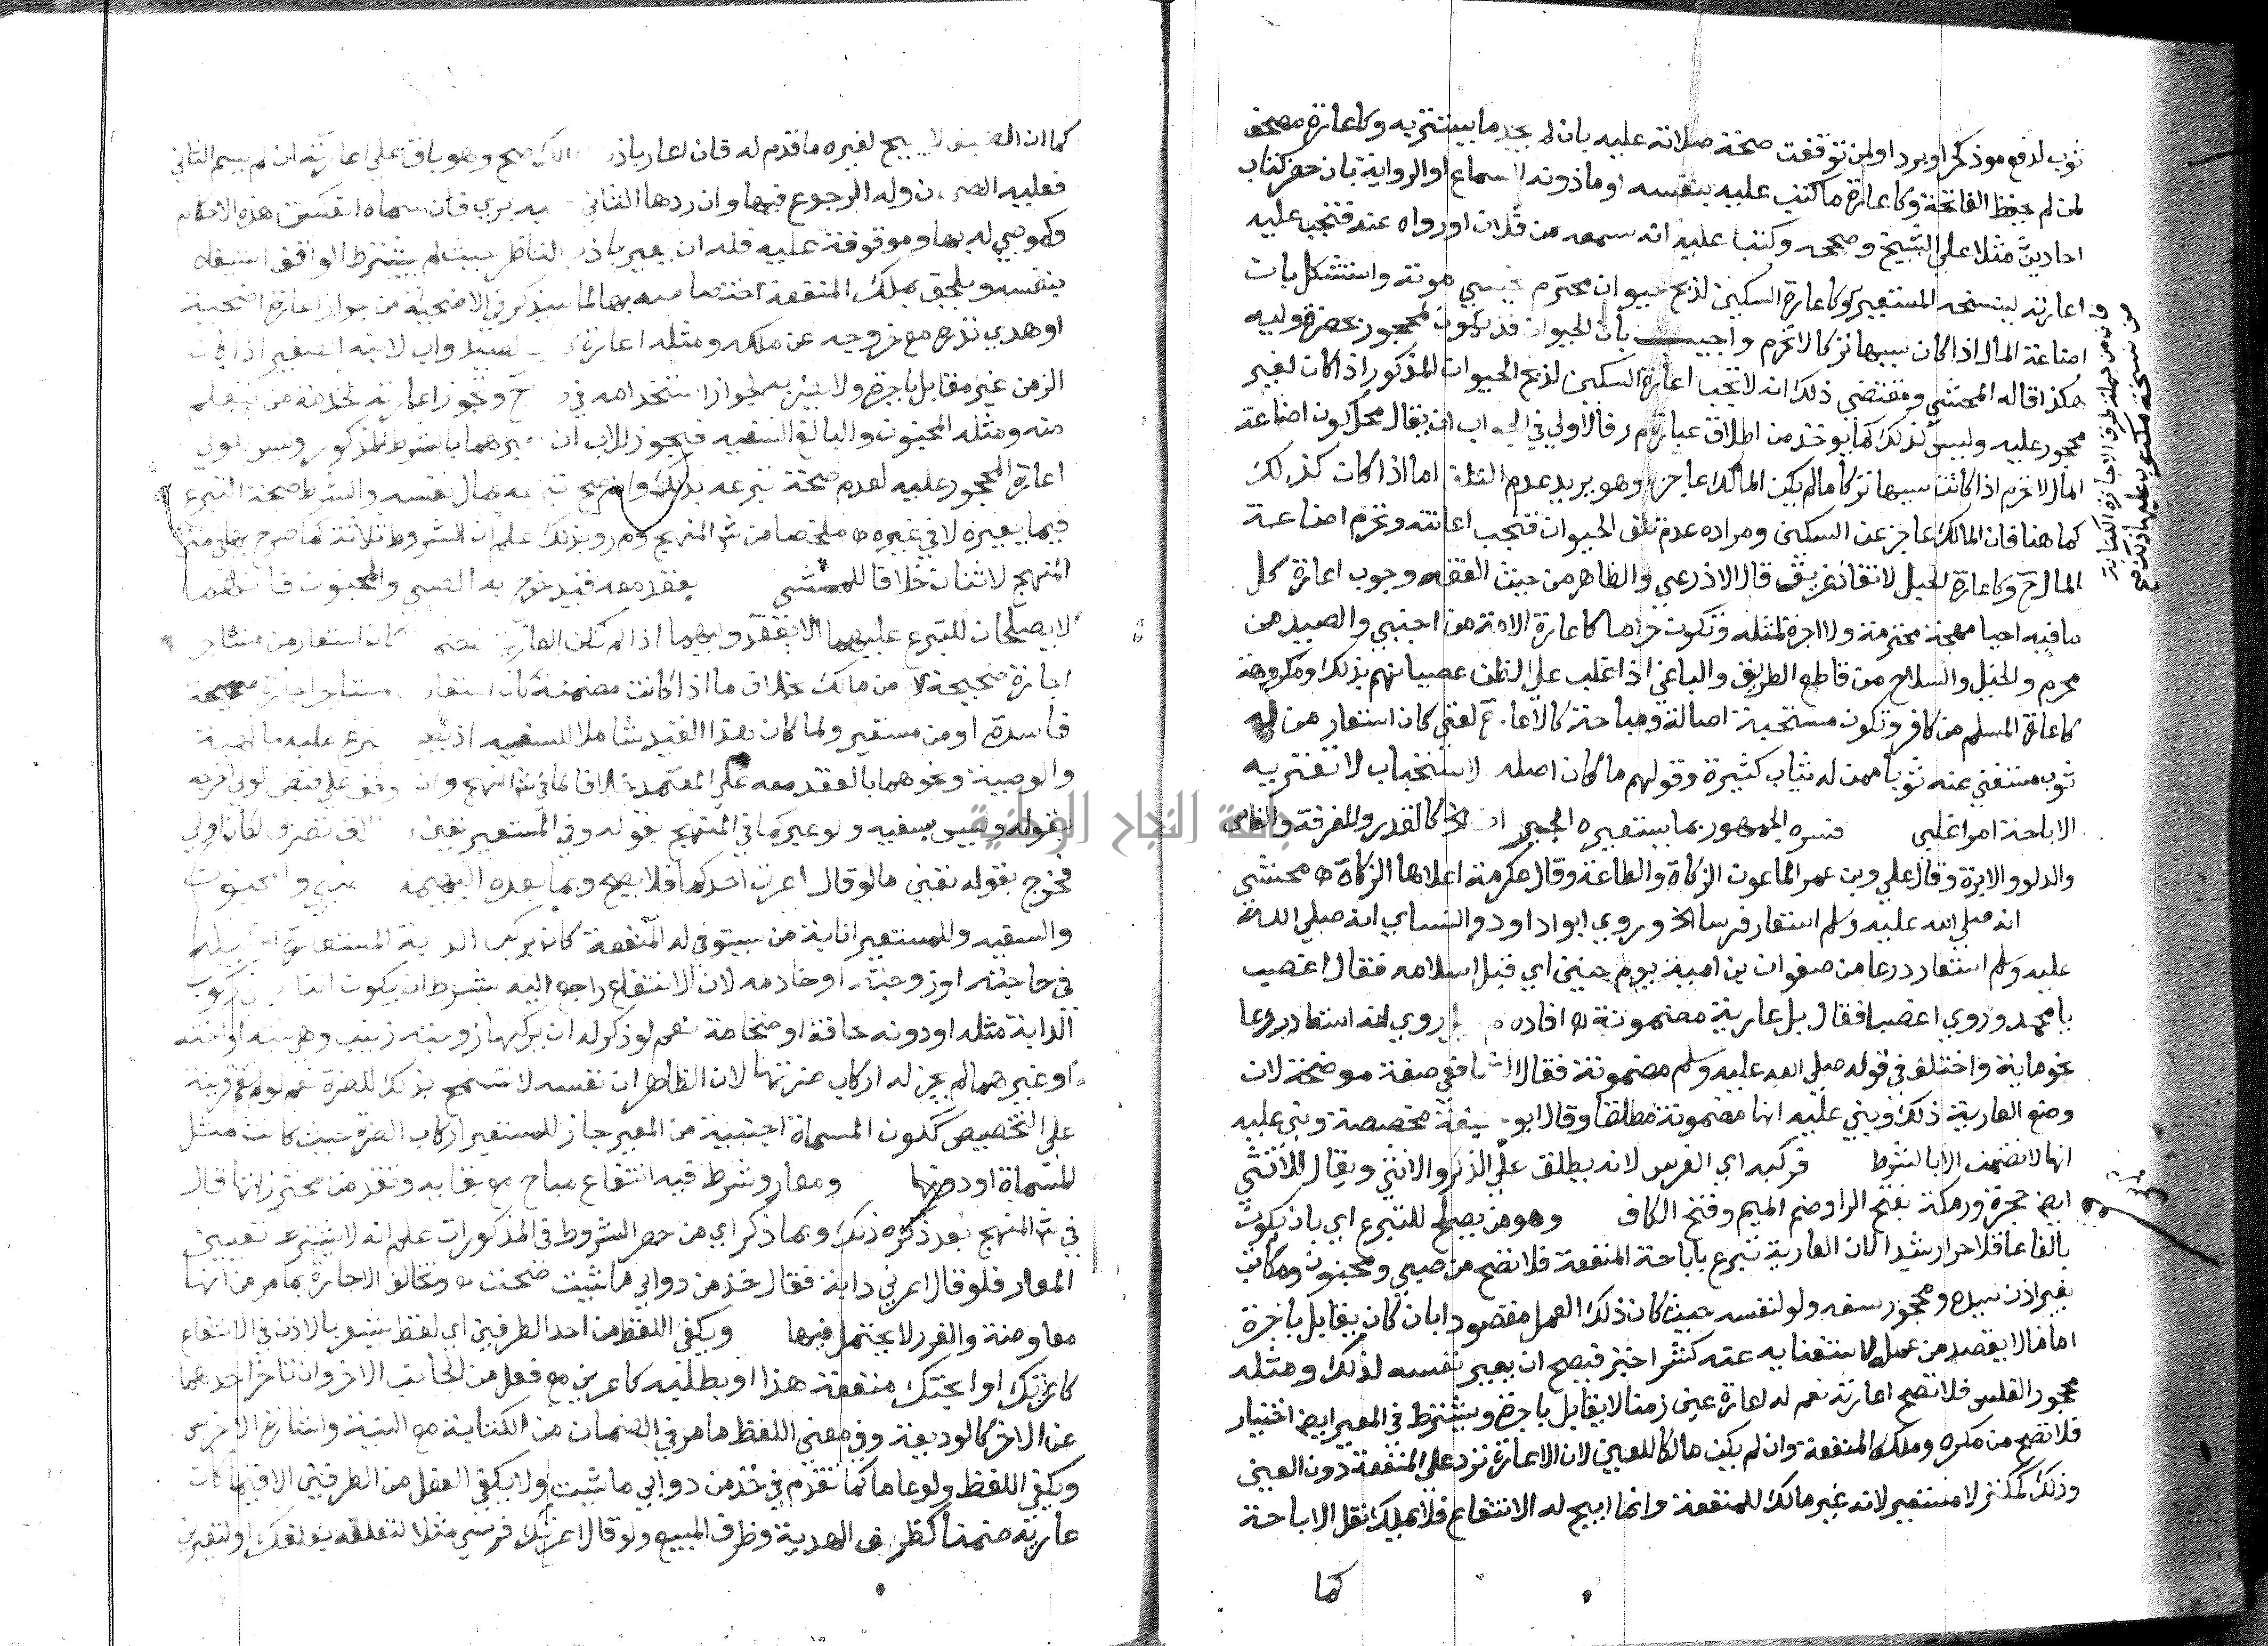 ثوب لدفع موذ كحر او برد او لمن توقفت صحة صلاته عليه بان لم يجد ما يستتر به وكاعارة مصحف
لمن لم يحفظ الفاتحة وكاعارة ما كتب عليه بنفسه او ماذونه السماع او الرواية بان حضر كتاب
احاديث مثلا على الشيخ وصححه وكتب عليه انه سمعه من فلان او رواه عنه فتجب عليه
اعارته لينسخه المستعير وكاعارة السكين لذبح حيوان محترم خشي موته واستشكل بان
اضاعة المال اذا كان سببها تركا لا تحرم واجيب بان الحيوان قد يكون لمحجور بحضرة وليه
هكذا قاله المحشي ومقتضى ذلك انه لا تجب اعارة السكين لذبح الحيوان المذكور اذا كان لغير
محجور عليه وليس كذلك كما يوخذ من اطلاق عبارة م ر فالاولى في الجواب ان يقال محل كون اضاعة
المال لا تحرم اذا كانت سببها تركا ما لم يكن المالك عاجزا وهو يريد عدم التلف اما اذا كان كذلك
كما هنا فان المالك عاجز عن السكين ومراده عدم تلف الحيوان فتجب اعانته وتحرم اضاعة
المال ح وكاعارة الحبل لانقاذ غريق قال الاذرعي والظاهر من حيث الفقه وجوب اعارة كل
ما فيه احيا مهجة محترمة ولا اجرة لمثله وتكون حراما كاعارة الامة من اجنبي والصيد من
محرم والخيل والسلاح من قاطع الطريق والباغي اذا غلب على الظن عصيانهم بذلك ومكروهة
كاعارة المسلم من كافر وتكون مستحبة اصالة ومباحة كالاعارة لغني كان استعار من له
ثوب مستغني عنه ثوبا ممن له ثياب كثيرة وقولهم ما كان اصله الاستحباب لا تعتريه
الاباحة امر اغلبي فسره الجمهور بما يستعيره الجيران الخ كالقدر والمغرفة والفاس
والدلو والابرة وقال علي وبن عمر الماعون الزكاة والطاعة وقال عكرمة اعلاها الزكاة ه محشي
انه صلى الله عليه وسلم استعار فرسا الخ وروي ابوا داود والنساي انه صلى الله
عليه وسلم استعار درعا من صفوان بن امية يوم حنين اي قبل اسلامه فقال اغصب
يا محمد وروي اغصبا فقال بل عارية مضمونة ه افاده م روي انه استعار دروعا
نحو ماية واختلف في قوله صلى الله عليه وسلم مضمونة فقال الشافعي صفة موضحة لان
وضع العارية ذلك وبني عليه انها مضمونة مطلقا وقال ابو حنيفة مخصصة وبني عليه
انها لا تضمن الا بالشرط فركبه اي الفرس لانه يطلق على الذكر والانثى ويقال للانثى
ايض حجرة ورمكة بفتح الرا وضم الميم وفتح الكاف وهو من يصلح للتبرع اي بان يكون
بالغا عاقلا حرا رشيدا لان العارية تبرع باباحة المنفعة فلا تصح من صبي ومجنون ومكاتب
بغير اذن سيده ومحجور سفه ولو لنفسه حيث كان ذلك العمل مقصودا بان كان يقابل باجرة
اما ما لا يقصد من عمله لاستغنايه عنه كنشر اختبز فيصح ان يعير نفسه لذلك ومثله
محجور الفلس فلا تصح اعارته نعم له اعارة عين زمنا لا يقابل باجرة ويشترط في المعير ايض اختيار
فلا تصح من مكره وملك المنفعة وان لم يكن مالكا للعين لان الاعارة ترد على المنفعة دون العين
وذلك كمكتر لا مستعير لانه غير مالك للمنفعة وانما ابيح له الانتفاع فلا يملك نقل الاباحة
كما
كما ان الضيف لا يبيح لغيره ما قدم له فان اعار باذن المالك صح وهو باق على اعارته ان لم يسم الثاني
فعليه الضمان وله الرجوع فيها وان ردها الثاني عليه بري فان سماه انعكست هذه الاحكام
وكموصي له بها وموقوفة عليه فله ان يعير باذن الناظر حيث لم يشترط الواقف استيفاه
بنفسه ويلحق بملك المنفعة اختصاصه بها لما سيذكر في الاضحية من جواز اعارة اضحية
او هدي نذره مع خروجه عن ملكه ومثله اعارة كلب لصيد واب لابنه الصغير اذا كان
الزمن غير مقابل باجرة ولا يضر به لجواز استخدامه في ح وتجوز اعارته لخدمة من يتعلم
منه ومثله المجنون والبالغ السفيه فيجوز للاب ان يعيرهما بالشرط المذكور وليس للولي
اعارة المحجور عليه لعدم صحة تبرعه بذلك بمال نفسه والشرط صحة التبرع
فيما يعيره لا في غيره ه ملخصا من ش المنهج وم ر وبذلك علم ان الشروط ثلاثة كما صرح بها في متن
المنهج لا ثنان خلافا للمحشي بعقد معه قيد خرج به الصبي والمجنون فانهما
لا يصلحان للتبرع عليهما الا بعقد وليهما اذا لم تكن العارية كان استعار من مستاجر
اجارة صحيحة لا من مالك بخلاف ما اذا كانت مضمنة كان استعار مستاجر اجارة
فاسدة او من مستعير ولما كان هذا القيد شاملا للسفيه اذ عليه
والوصية ونحوهما بالعقد معه على المعتمد خلافا لما في ش المنهج وان على قبض الولي اخرجه
بقوله وليس بسفيه ولو عبر كما في المنهج بقوله وفي المستعير تعين تصرف لكان اولى
فخرج بقوله تعين ما لو قال اعرت احدكما فلا يصح وبما بعده البهيمة والمجنون
والسفيه وللمستعير انابة من يستوفي له المنفعة كان يركب الدابة المستعارة
في حاجته او زوجته او خادمه لان الانتفاع راجع اليه بشرط ان يكون ركوب
الدابة مثله او دونه نحافة او ضخامة نعم لو ذكر له ان يركبها زوجته زينب وهي بنته او اخته
او غيرهما لم يجز له اركاب ضرتها لان الظاهر ان نفسه لا تسمح بذلك للضرة نعم لو قرينة
على التخصيص ككون المسماة اجنبية من المعير جاز للمستعير اركاب الضرة حيث كانت مثل
المسماة او دونها ومعار وشرط فيه انتفاع مباح مع بقايه وتقدمت محترزاتها قال
في ش المنهج بعد ذكره ذلك وبما ذكر اي من حصر الشروط في المذكورات علم انه لا يشترط تعيين
المعار فلو قال اعرني دابة فقال خذ من دوابي ما شيت صحت ه وتخالف الاجارة بما مر من انها
معاوضة والغرر لا يحتمل فيها ويكفي اللفظ من احد الطرفين اي لفظ يشعر بالاذن في الانتفاع
كاعرتك او ابحتك منفعة هذا او بطلبه كاعرني مع فعل من الجانب الاخر وان تاخر احدهما
عن الاخر كالوديعة وفي معنى اللفظ ما مر في الضمان من الكناية مع النية واشارة الاخرس
ويكفي اللفظ ولو عاما كما تقدم في خذ من دوابي ما شيت ولا يكفي الفعل من الطرفين الا فيما كانت
عارية ضمنا كظرف الهدية وظرف المبيع ولو قال اعرتك فرسي مثلا لتعلفه بعلفك او لتعيرني
جامعة النجاح الوطنية